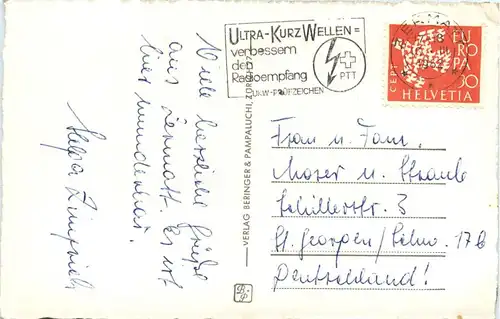 ULTRA-KURZWELLEN =
verbessern
den
Radioempfang
UKW-PRÜFZEICHEN
PTT
ZERMATT
CEPT
EUROPA
30
HELVETIA
Viele herzliche Grüße
aus Zermatt. Es ist
hier wunderbar.
Helga
VERLAG BERINGER & PAMPALUCHI, ZÜRICH
B+P
Frau u. Fam.
Moser u. Straub
Schillerstr. 3
St. Georgen/Schw. 17b
Deutschland!